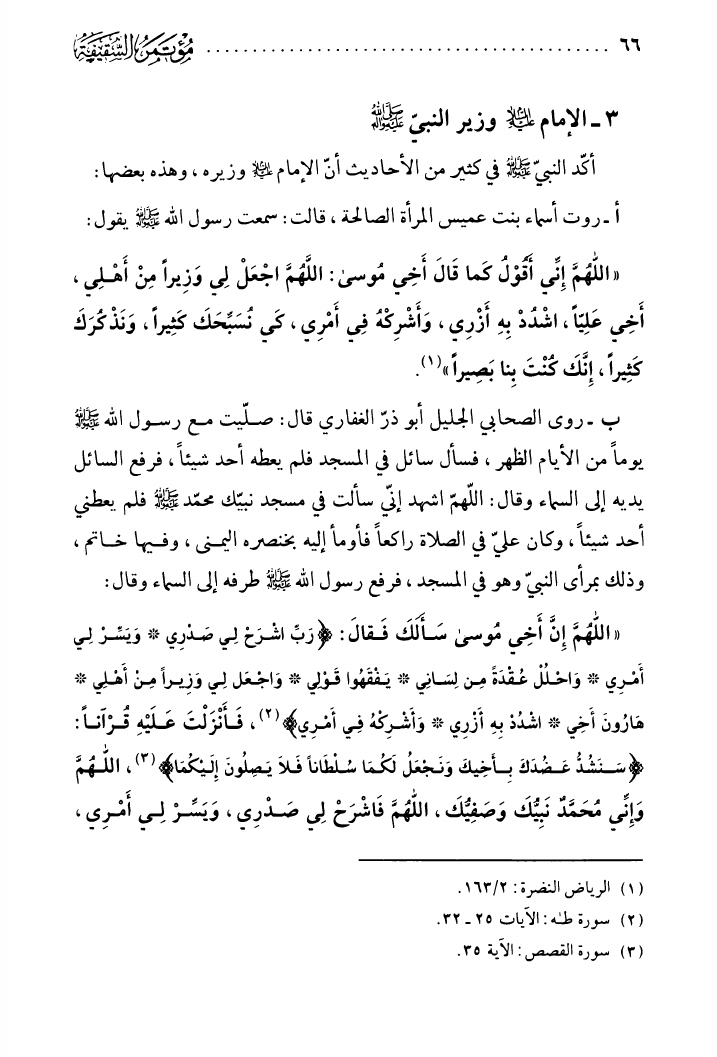 ٦٦ ........................................ مؤتمر السقيفة
٣ ـ الإمام عليه السلام وزير النبيّ ﷺ
أكّد النبيّ ﷺ في كثير من الأحاديث أنّ الإمام عليه السلام وزيره ، وهذه بعضها :
أ ـ روت أسماء بنت عميس المرأة الصالحة ، قالت : سمعت رسول الله ﷺ يقول :
« اللّٰهُمَّ إِنِّي أَقُوْلُ كَما قَالَ أَخِي مُوسىٰ : اللَّهُمَّ اجْعَلْ لِي وَزِيراً مِنْ أَهْلِي ،
أَخِي عَلِيّاً ، اشْدُدْ بِهِ أَزْرِي ، وَأَشْرِكْهُ فِي أَمْرِي ، كَي نُسَبِّحَكَ كَثِيراً ، وَنَذْكُرَكَ
كَثِيراً ، إِنَّكَ كُنْتَ بِنا بَصِيراً »(١).
ب ـ روى الصحابي الجليل أبو ذرّ الغفاري قال : صلّيت مع رسول الله ﷺ
يوماً من الأيام الظهر ، فسأل سائل في المسجد فلم يعطه أحد شيئاً ، فرفع السائل
يديه إلى السماء وقال : اللّهمّ اشهد إنّي سألت في مسجد نبيّك محمّد ﷺ فلم يعطني
أحد شيئاً ، وكان عليّ في الصلاة راكعاً فأومأ إليه بخنصره اليمنى ، وفيها خاتم ،
وذلك بمرأى النبيّ وهو في المسجد ، فرفع رسول الله ﷺ طرفه إلى السماء وقال :
« اللّٰهُمَّ إِنَّ أَخِي مُوسىٰ سَأَلَكَ فَقالَ : ﴿رَبِّ اشْرَحْ لِي صَدْرِي * وَيَسِّرْ لِي
أَمْرِي * وَاحْلُلْ عُقْدَةً مِن لِسَانِي * يَفْقَهُوا قَوْلِي * وَاجْعَل لِي وَزِيراً مِنْ أَهْلِي *
هَارُونَ أَخِي * اشْدُدْ بِهِ أَزْرِي * وَأَشْرِكْهُ فِي أَمْرِي﴾(٢) ، فَأَنْزَلْتَ عَلَيْهِ قُرْآناً :
﴿سَنَشُدُّ عَضُدَكَ بِأَخِيكَ وَنَجْعَلُ لَكُمَا سُلْطَاناً فَلاَ يَصِلُونَ إِلَيْكُمَا﴾(٣) ، اللّٰهُمَّ
وَإِنِّي مُحَمَّدٌ نَبِيُّكَ وَصَفِيُّكَ ، اللّٰهُمَّ فَاشْرَحْ لِي صَدْرِي ، وَيَسِّرْ لِي أَمْرِي ،
(١) الرياض النضرة : ٢/١٦٣.
(٢) سورة طـٰه : الآيات ٢٥ ـ ٣٢.
(٣) سورة القصص : الآية ٣٥.